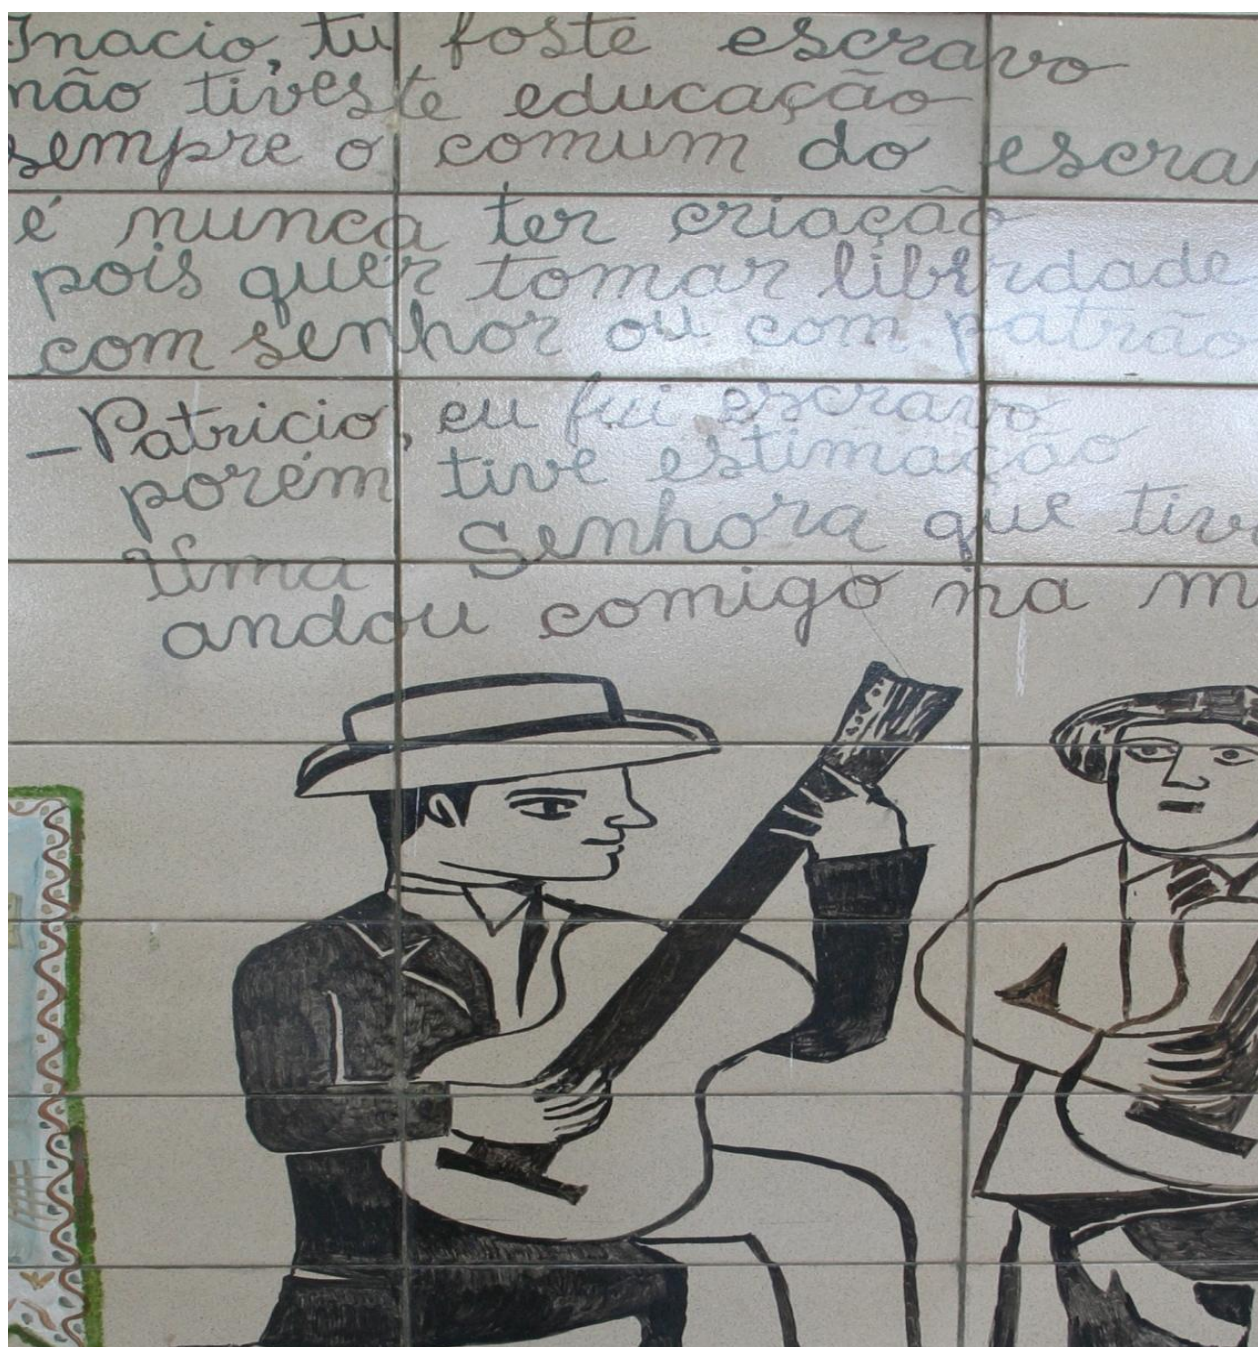 Inacio, tu foste escravo
não tiveste educação
sempre o comum do escra
é nunca ter criação
pois quer tomar liberdade
com senhor ou com patrão
– Patricio, eu fui escravo
porém tive estimação
Uma Senhora que tive
andou comigo na m